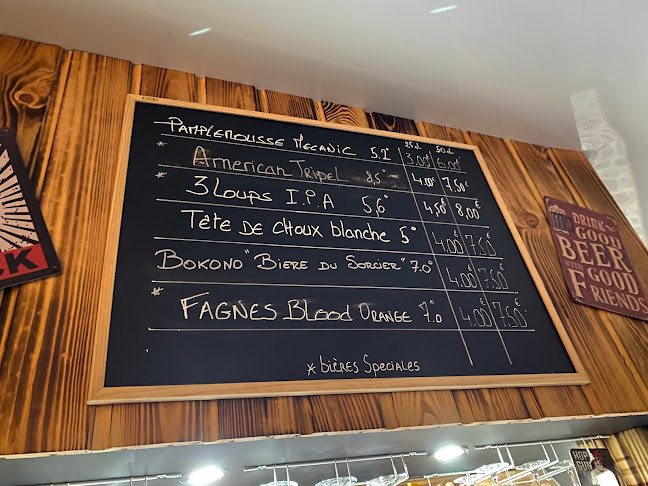 25cl 50cl
PAMPLEMOUSSE MECANIC 5.2° 3.00€ 6.00€
* AMERICAN TRIPEL 8,5° 4.00€ 7.50€
* 3 LOUPS I.P.A 5,6° 4,50€ 8,00€
TÊTE DE CHOUX blanche 5° 4.00€ 7.50€
BOKONO "BIERE DU SORCIER" 7.0° 4.00€ 7.50€
* FAGNES BLOOD ORANGE 7.0° 4.00€ 7.50€
* bières Speciales
CK
DRINK
GOOD
BEER
WITH GOOD
FRIENDS
HOP
GUN